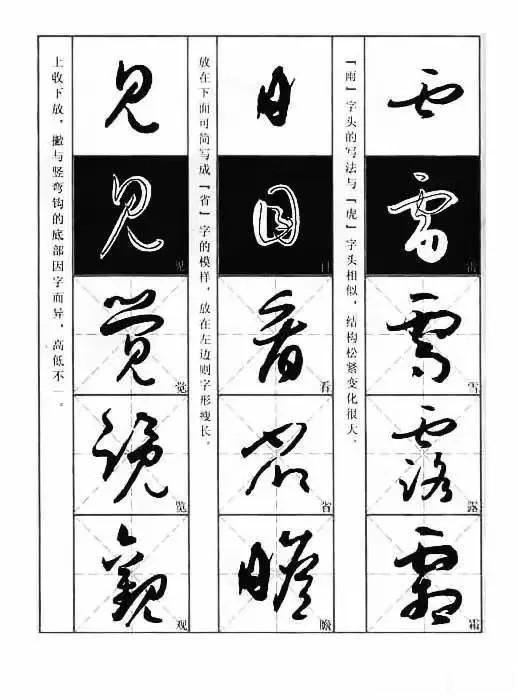 雪
露
霜
「雨」字头的写法与「虎」字头相似，结构松紧变化很大。
目
看
省
瞻
放在下面可简写成「省」字的模样，放在左边则字形瘦长。
见
觉
览
观
上收下放，撇与竖弯钩的底部因字而异，高低不一。